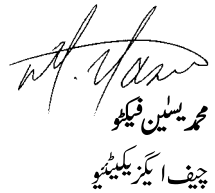 محمد یسٰین فیکٹو
چیف ایگزیکیٹیو